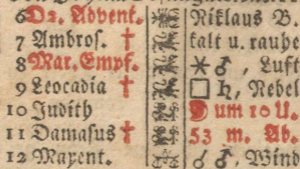 6 D2. Advent. Niklaus B.
7 Ambros. † kalt u. rauhe
8 Mar. Empf. ⚹ ♂, Luft
9 Leocadia † □ ♄, Nebel
10 Judith um 10 U.
11 Damasus † 53 m. Ab.
12 Maxent. ☌ ♂, Wind